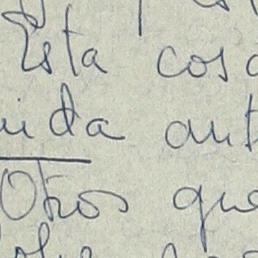 Esta cos
uida ant
Otros que